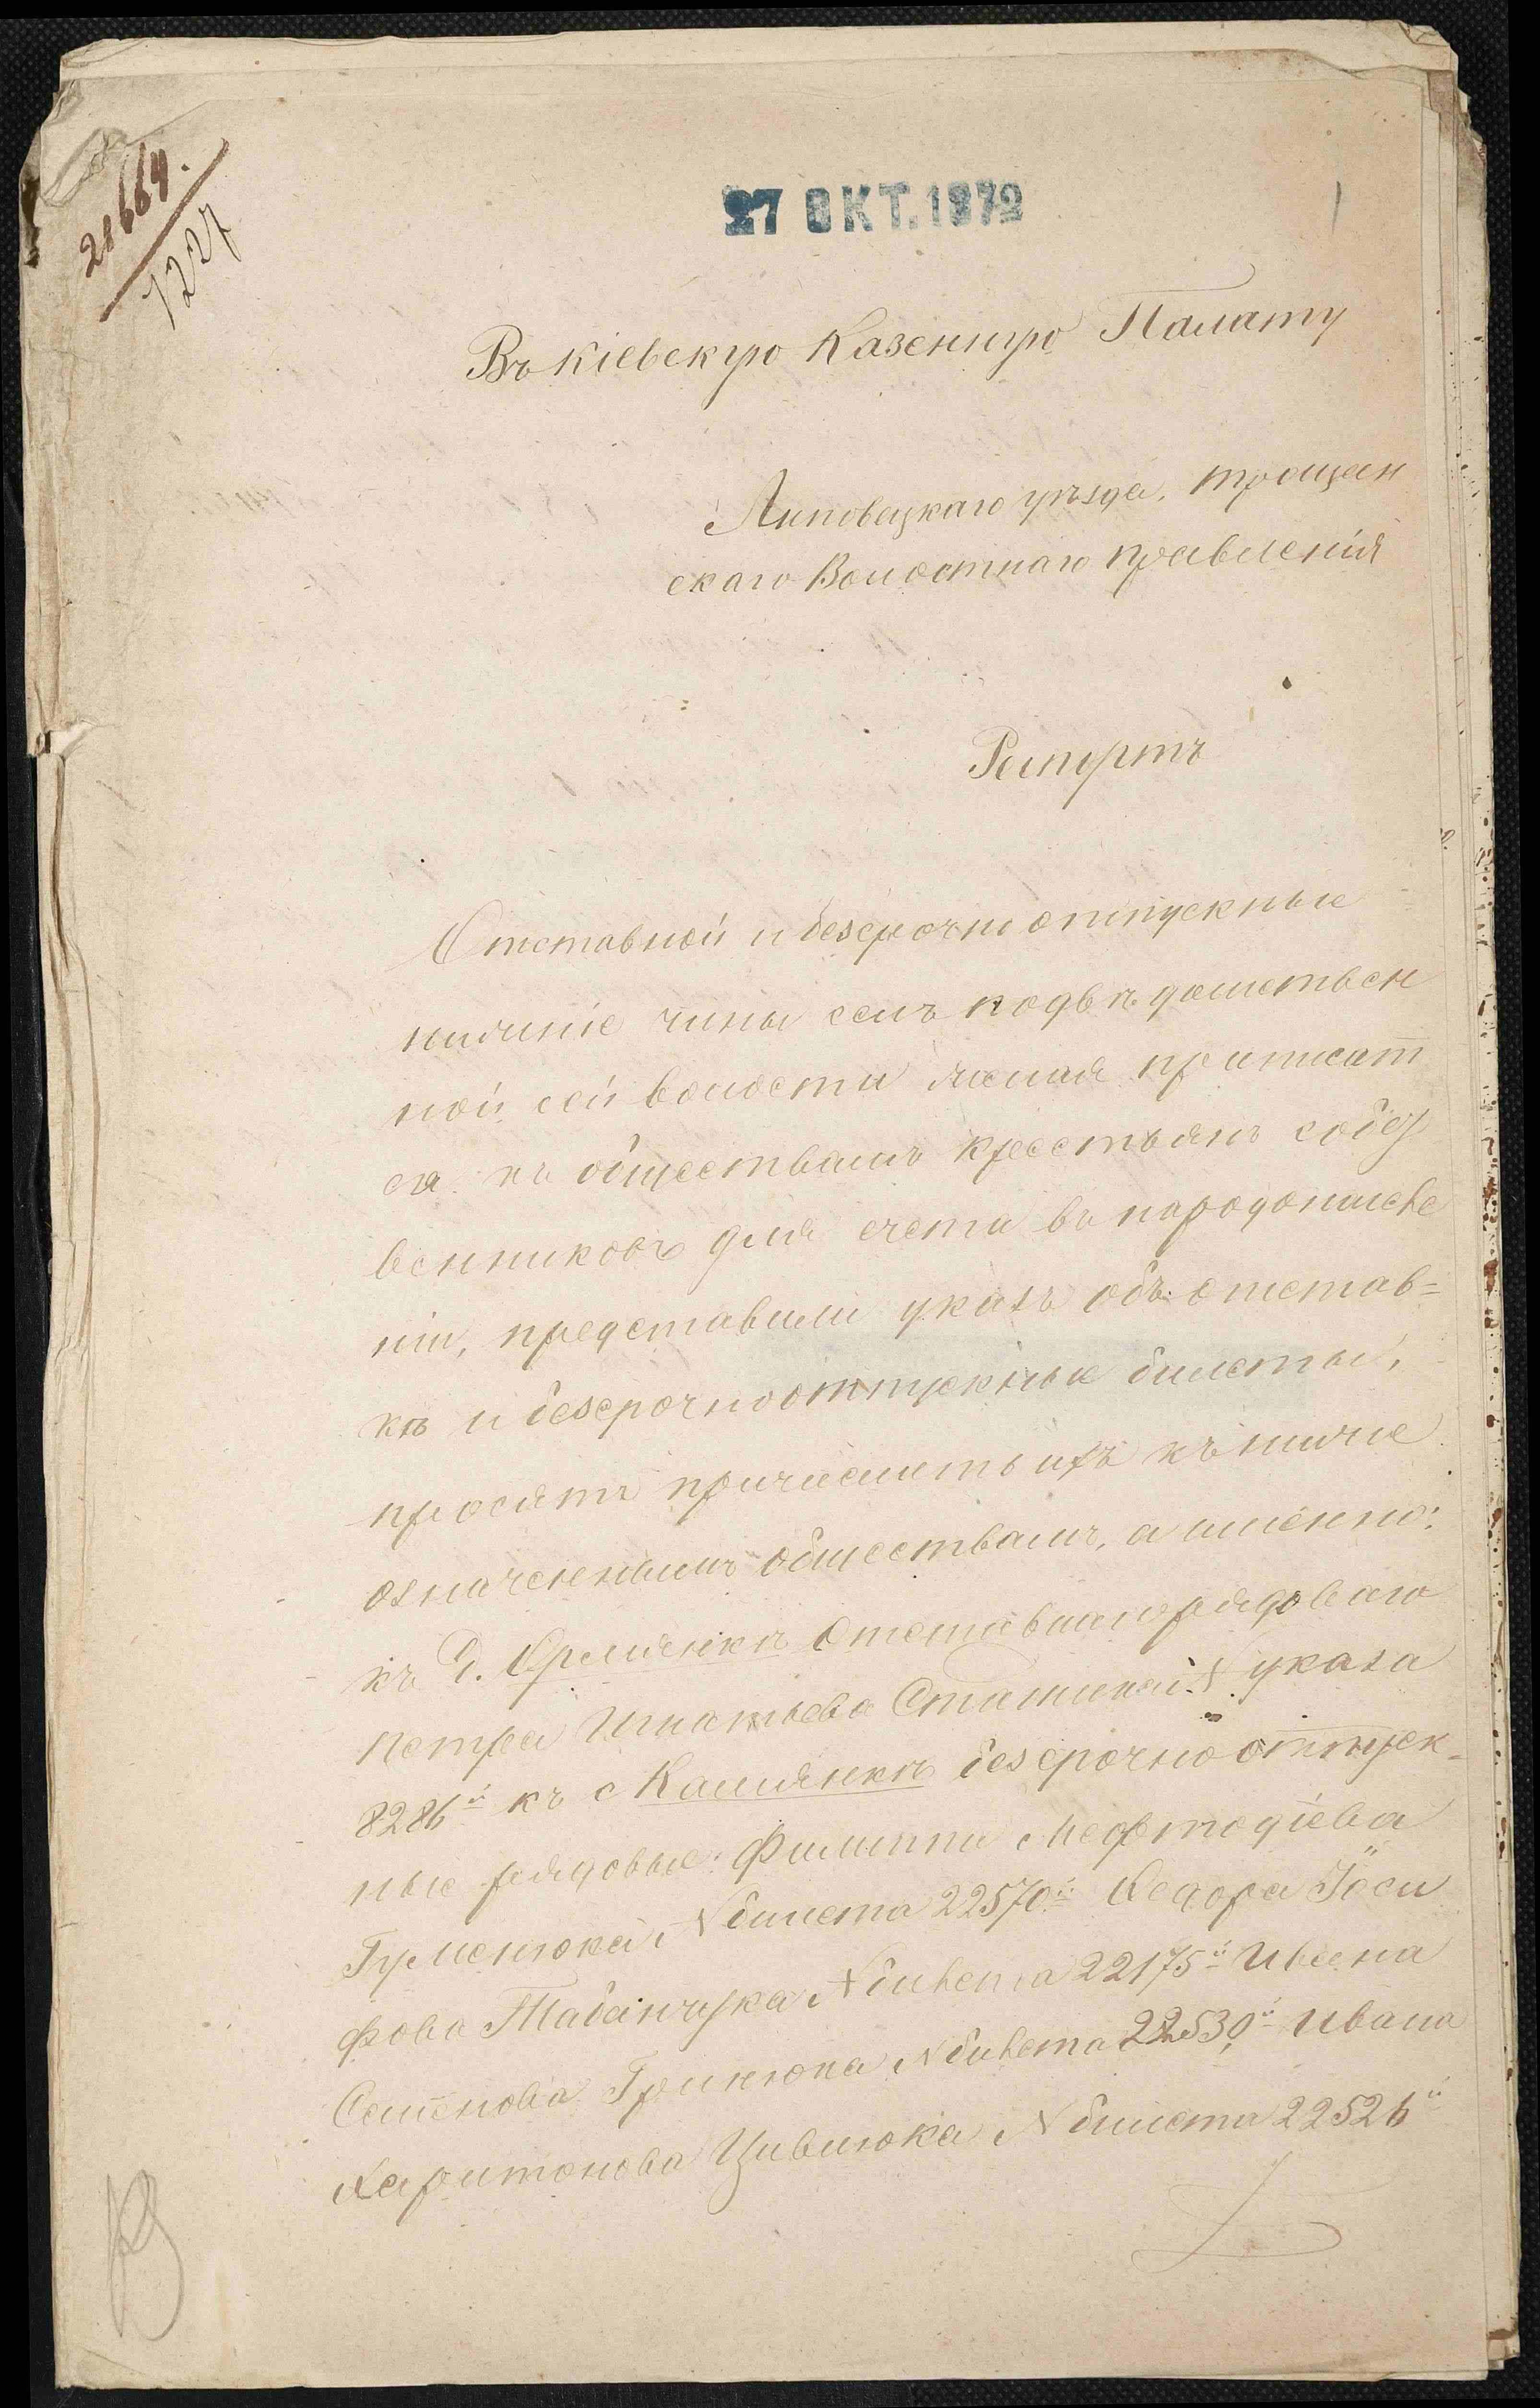 21664.
1227
27 ОКТ. 1872
1
Въ Кіевскую Казенную Палату
Липовецкаго уѣзда, трощан
скаго Волостнаго правленія
Рапортъ
Отставной и безсрочно отпускные
нижніе чины семъ подвѣдомствен
ной сей волости желая приписат
ся къ обществамъ крестьянъ собст
венниковъ для счета въ народоисчесле
ніи, представили указъ объ отстав=
кѣ и безсрочноотпускные билеты,
просятъ причислить ихъ къ ниже
означеннымъ обществамъ, а именно:
къ д. отставнаго рядоваго
Петра Игнатьева № указа
8286й къ с Камянкѣ безсрочно отпуск-
ные рядовые: Филиппа Мефтодіева
Гуменюка № билета 22570й Федора Іоси
фова Табанчука № билета 22175й Ивана
Семенова Гринюка № билета 22530й Ивана
Харитонова Цивлюка № билета 22526й